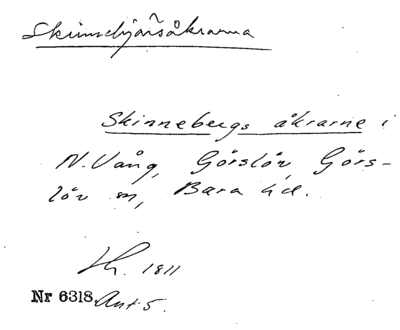 Skinnebjärsåkrarna
Skinnebergs åkrarne i
N. Vång, Görslöv, Görs-
löv sn, Bara hd.
Lh. 1811
Nr 6318 Ant 5.